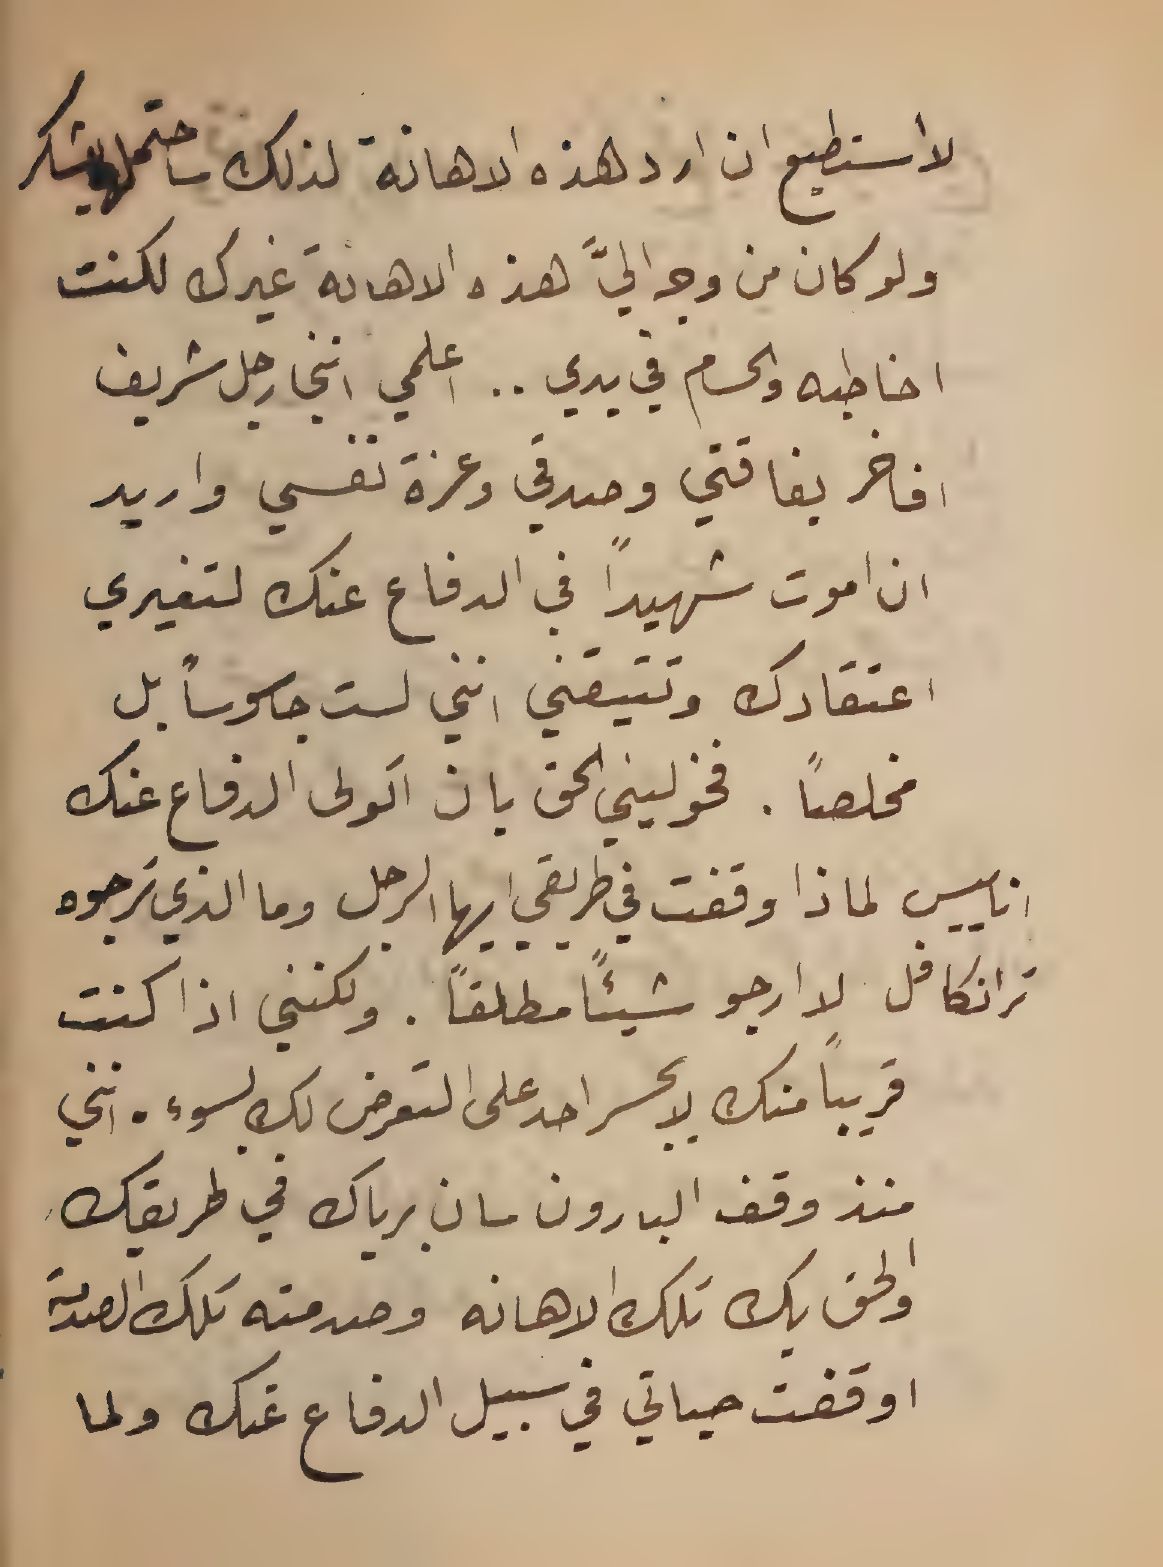 لا أستطيع ان ارد هذه الاهانة لذلك ساحتملها بشكر
ولو كان من وجه اليَّ هذه الاهانة غيرك لكنت
اخاطبه والحسام في يدي .. اعلمي انني رجل شريف
افاخر بفاقتي وصدقي وعزة نفسي واريد
ان اموت شهيداً في الدفاع عنك لتغيري
اعتقادك وتتيقني انني لست جاسوساً بل
مخلصاً . فخوليني الحق بان اتولى الدفاع عنك
اناييس لماذا وقفت في طريقي ايها الرجل وما الذي ترجوه
ترانكافل لا ارجو شيئاً مطلقاً . ولكنني اذا كنت
قريباً منك لا يجسر احد على التعرض لك بسوء . انني
منذ وقف البارون سان برياك في طريقك
والحق بك تلك الاهانه وصدمته تلك الصدمة
اوقفت حياتي في سبيل الدفاع عنك ولما